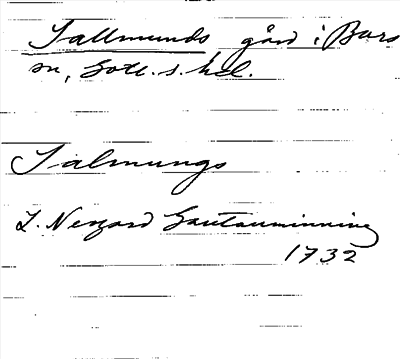 Sallmunds gård i Burs
sn, Gotl. s. hel.
Salmungs
L. Neogard Gautauminning
1732